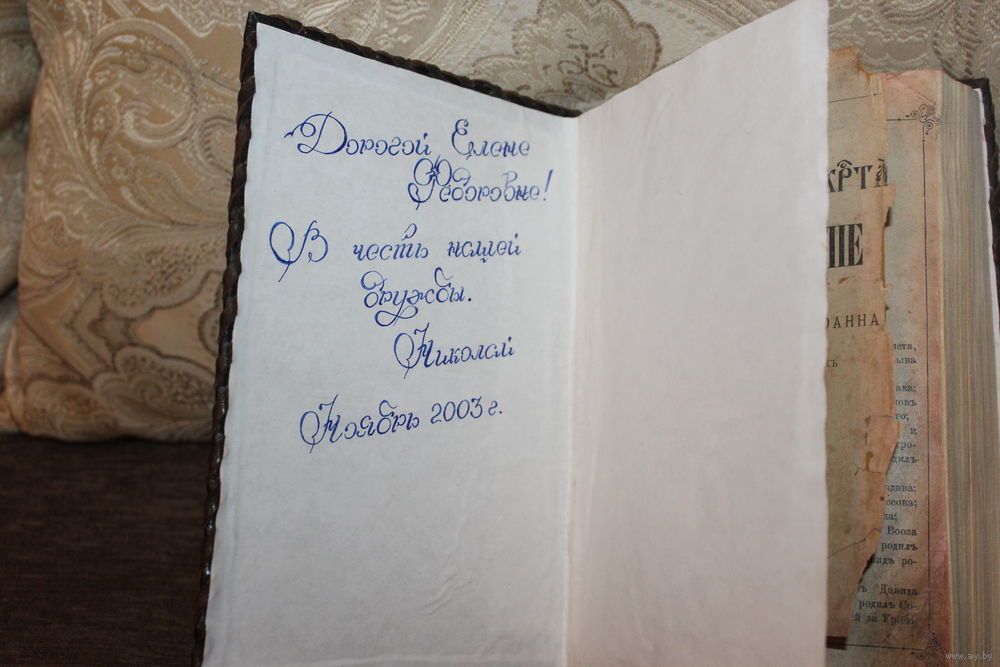 Дорогой Елене
Федоровне!
В честь нашей
дружбы.
Николай
Ноябрь 2003 г.
ШЕ
ОАННА
иста,
ына
ака;
ковъ
го;
и
ро-
дилъ
дава;
ссона;
на;
Вооза
родилъ
видъ ро-
ъ Давида
родилъ Со-
й за Уріею;
www.ay.by